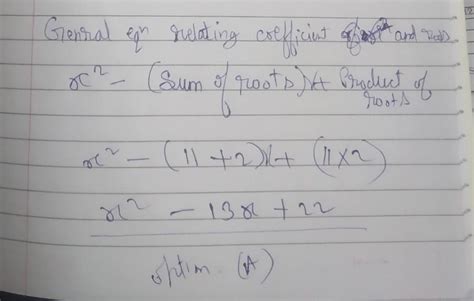 General eqn relating coefficient and roots
x² - (Sum of roots)x + Product of roots
x² - (11 + 2)x + (11x2)
x² - 13x + 22
option (A)